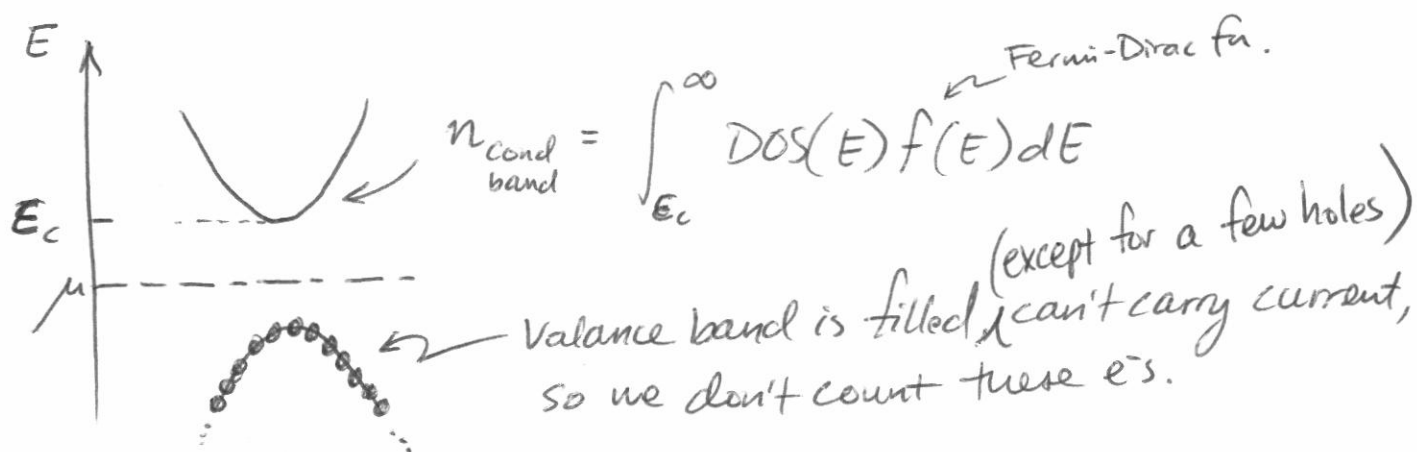 E
Fermi-Dirac fn.
n cond band = ∫ E_c ∞ DOS(E) f(E) dE
E_c
(except for a few holes)
μ
Valance band is filled, can't carry current,
so we don't count these e⁻s.